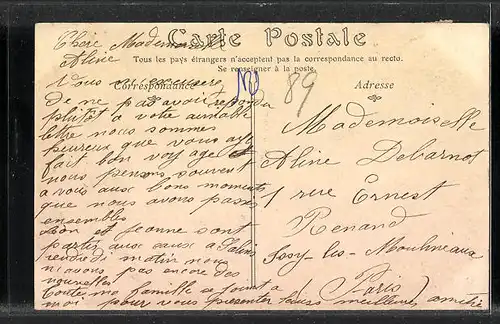 Carte Postale
Tous les pays étrangers n'acceptent pas la correspondance au recto.
Se renseigner à la poste.
Correspondance
Adresse
89
Chère Mademoiselle
Aline
Vous m'excuserez
de ne pas avoir repondu
plutôt a votre aimable
lettre nous sommes
heureux que vous ayez
fait bon voyage et
nous pensons souvent
a vous aux bons moments
que nous avons passés
ensembles
Léon et Jeanne sont
partis aux eaux a Salins
vendredi matin nous
n'avons pas encore des
nouvelles
Toutes ma famille se joint a
moi pour vous presenter leurs meilleures amitié
Mademoiselle
Aline Debarnot
1 rue Ernest
Renand
Issy-les-Moulineaux
(Paris)